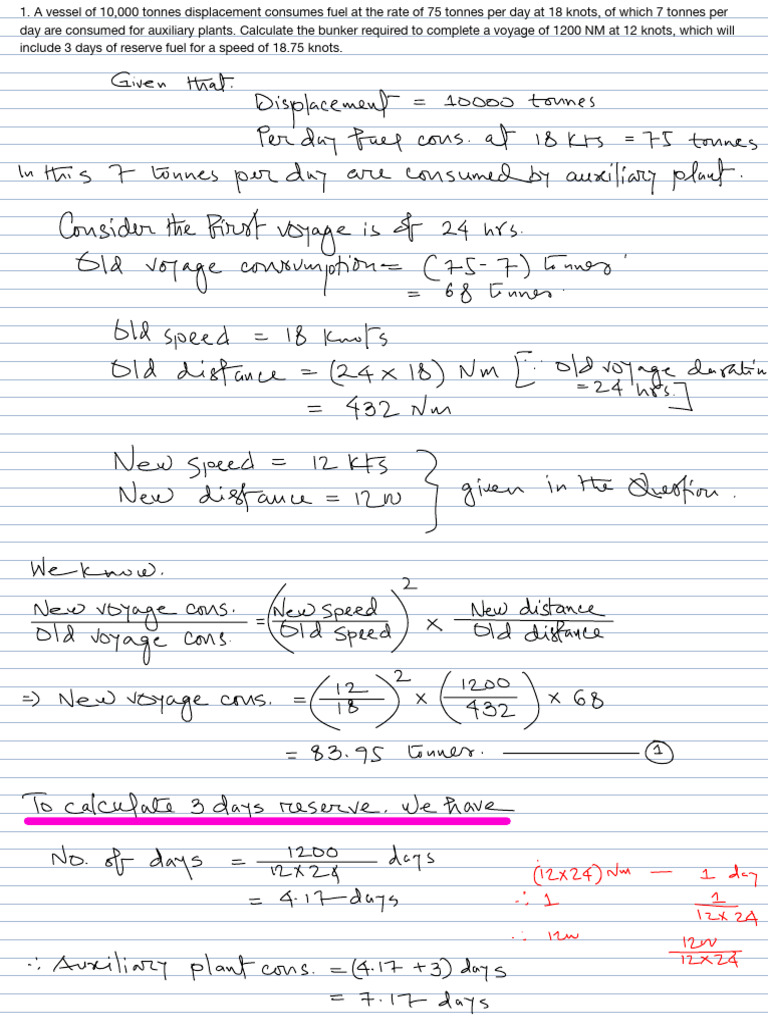 1. A vessel of 10,000 tonnes displacement consumes fuel at the rate of 75 tonnes per day at 18 knots, of which 7 tonnes per
day are consumed for auxiliary plants. Calculate the bunker required to complete a voyage of 1200 NM at 12 knots, which will
include 3 days of reserve fuel for a speed of 18.75 knots.
Given that:
Displacement = 10000 tonnes
Per day fuel cons. at 18 Kts = 75 tonnes
In this 7 tonnes per day are consumed by auxiliary plant.
Consider the first voyage is of 24 hrs.
Old voyage consumption = (75-7) tonnes
= 68 tonnes.
Old speed = 18 Knots
Old distance = (24 x 18) Nm [∵ old voyage duration
= 24 hrs.]
= 432 Nm
New speed = 12 Kts
New distance = 1200 } given in the Question.
We know.
New voyage cons. / Old voyage cons. = (New speed / Old speed)² x New distance / Old distance
=> New voyage cons. = (12/18)² x (1200/432) x 68
= 83.95 tonnes. ——— ①
To calculate 3 days reserve. We have
No. of days = 1200 / 12x24 days
= 4.17 days
(12x24) Nm — 1 day
∴ 1 1 / 12x24
∴ 1200 1200 / 12x24
∴ Auxiliary plant cons. = (4.17 + 3) days
= 7.17 days